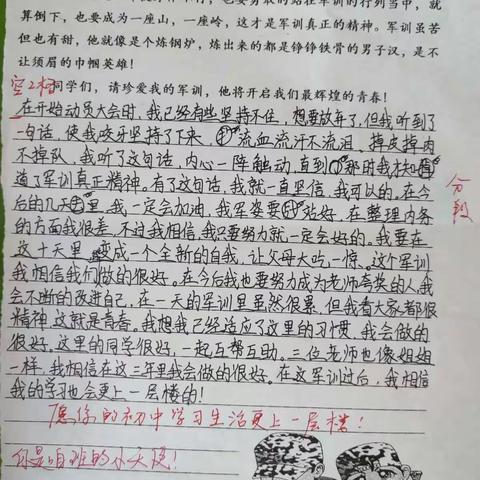 算倒下，也要成为一座山，一座岭，这才是军训真正的精神。军训虽苦
但也有甜，他就像是个炼钢炉，炼出来的都是铮铮铁骨的男子汉，是不
让须眉的巾帼英雄！
空2格 同学们，请珍爱我的军训，他将开启我们最辉煌的青春！
在开始动员大会时，我已经有些坚持不住，想要放弃了，但我听到了
一句话，使我咬牙坚持了下来，流血流汗不流泪，掉皮掉肉
不掉队，我听了这句话，内心一阵触动，直到那时我才知
道了军训真正精神。有了这句话，我就一直坚信，我可以的，在今
后的几天里，我一定会加油，我军姿要站好，在整理内务
的方面我很差，不过我相信，我只要努力就一定会好的。我要在
这十天里，变成一个全新的自我，让父母大吃一惊。这个军训
我相信我们做的很好。在今后我也要努力成为老师夸奖的人，我
会不断的改进自己，在一天的军训里虽然很累，但我看大家都很
精神，这就是青春。我想我已经适应了这里的习惯，我会做的
很好。这里的同学很好，一起互帮互助。三位老师也像姐姐
一样，我相信在这三年里我会做的很好。在这军训过后，我相信
我的学习也会更上一层楼的！
分段
愿你的初中学习生活更上一层楼！
你是咱班的小天使！